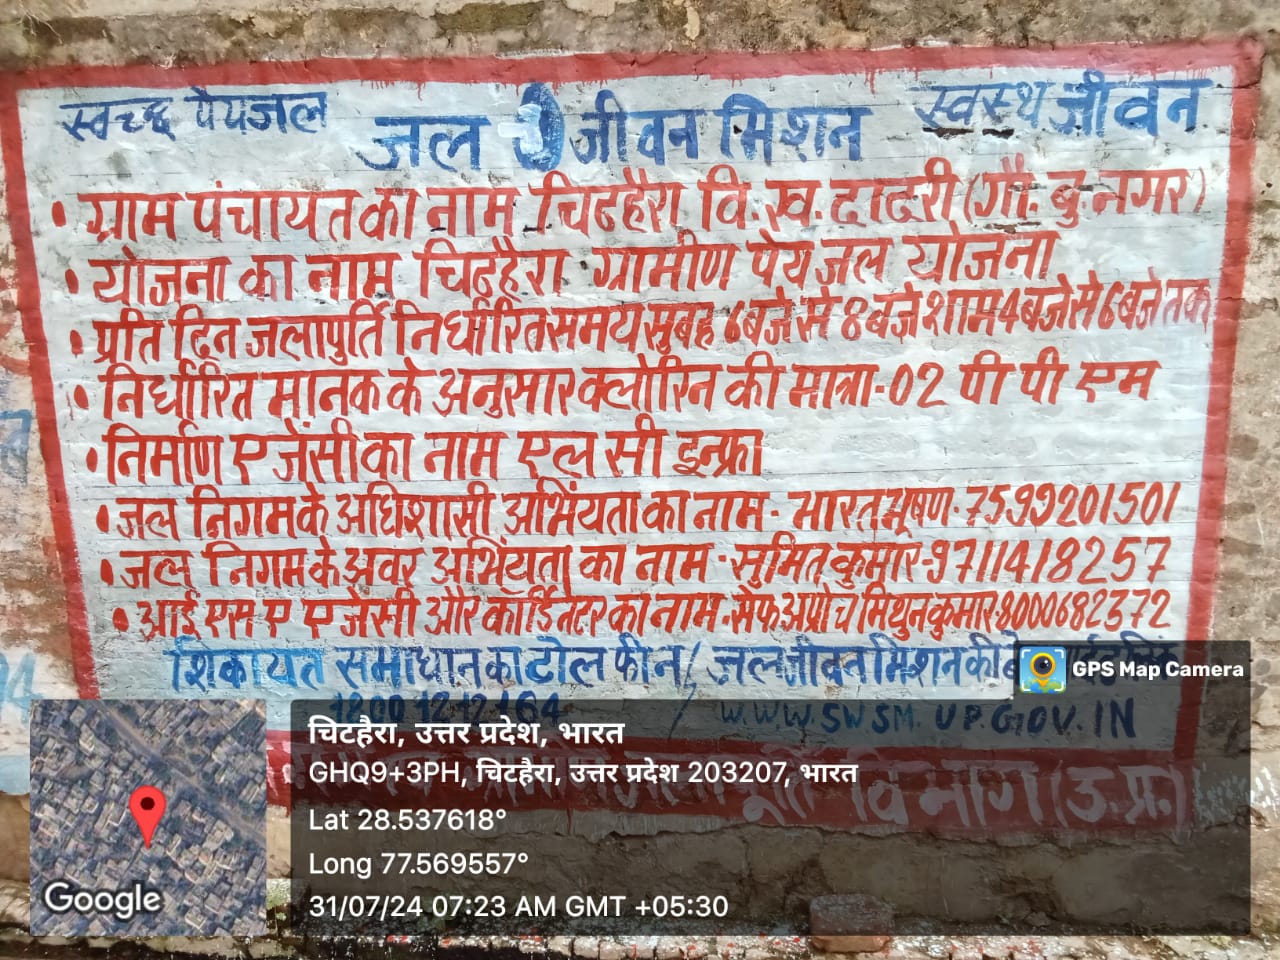 स्वच्छ पेयजल जल जीवन मिशन स्वस्थ जीवन
• ग्राम पंचायत का नाम चिटहैरा वि. ख. दादरी (गौ. बु. नगर)
• योजना का नाम चिटहैरा ग्रामीण पेयजल योजना
• प्रति दिन जलापुर्ति निर्धारित समय सुबह 6 बजे से 8 बजे शाम 4 बजे से 6 बजे तक
• निर्धारित मानक के अनुसार क्लोरिन की मात्रा-02 पी पी एम
• निर्माण एजेंसी का नाम एल सी इन्फ्रा
• जल निगम के अधिशासी अभियंता का नाम - भारत भूषण-7599201501
• जल निगम के अवर अभियंता का नाम - सुमित कुमार-9711418257
• आई एस ए एजेंसी और कॉर्डिनेटर का नाम-सेफ अप्रोच मिथुन कुमार-8000682372
शिकायत समाधान का टोल फ्री न / जल जीवन मिशन की
1800 1212164 / W.WW.SWSM.UP.GOV.IN
विभाग (उ.प्र.)
GPS Map Camera
चिटहैरा, उत्तर प्रदेश, भारत
GHQ9+3PH, चिटहैरा, उत्तर प्रदेश 203207, भारत
Lat 28.537618°
Long 77.569557°
31/07/24 07:23 AM GMT +05:30
Google